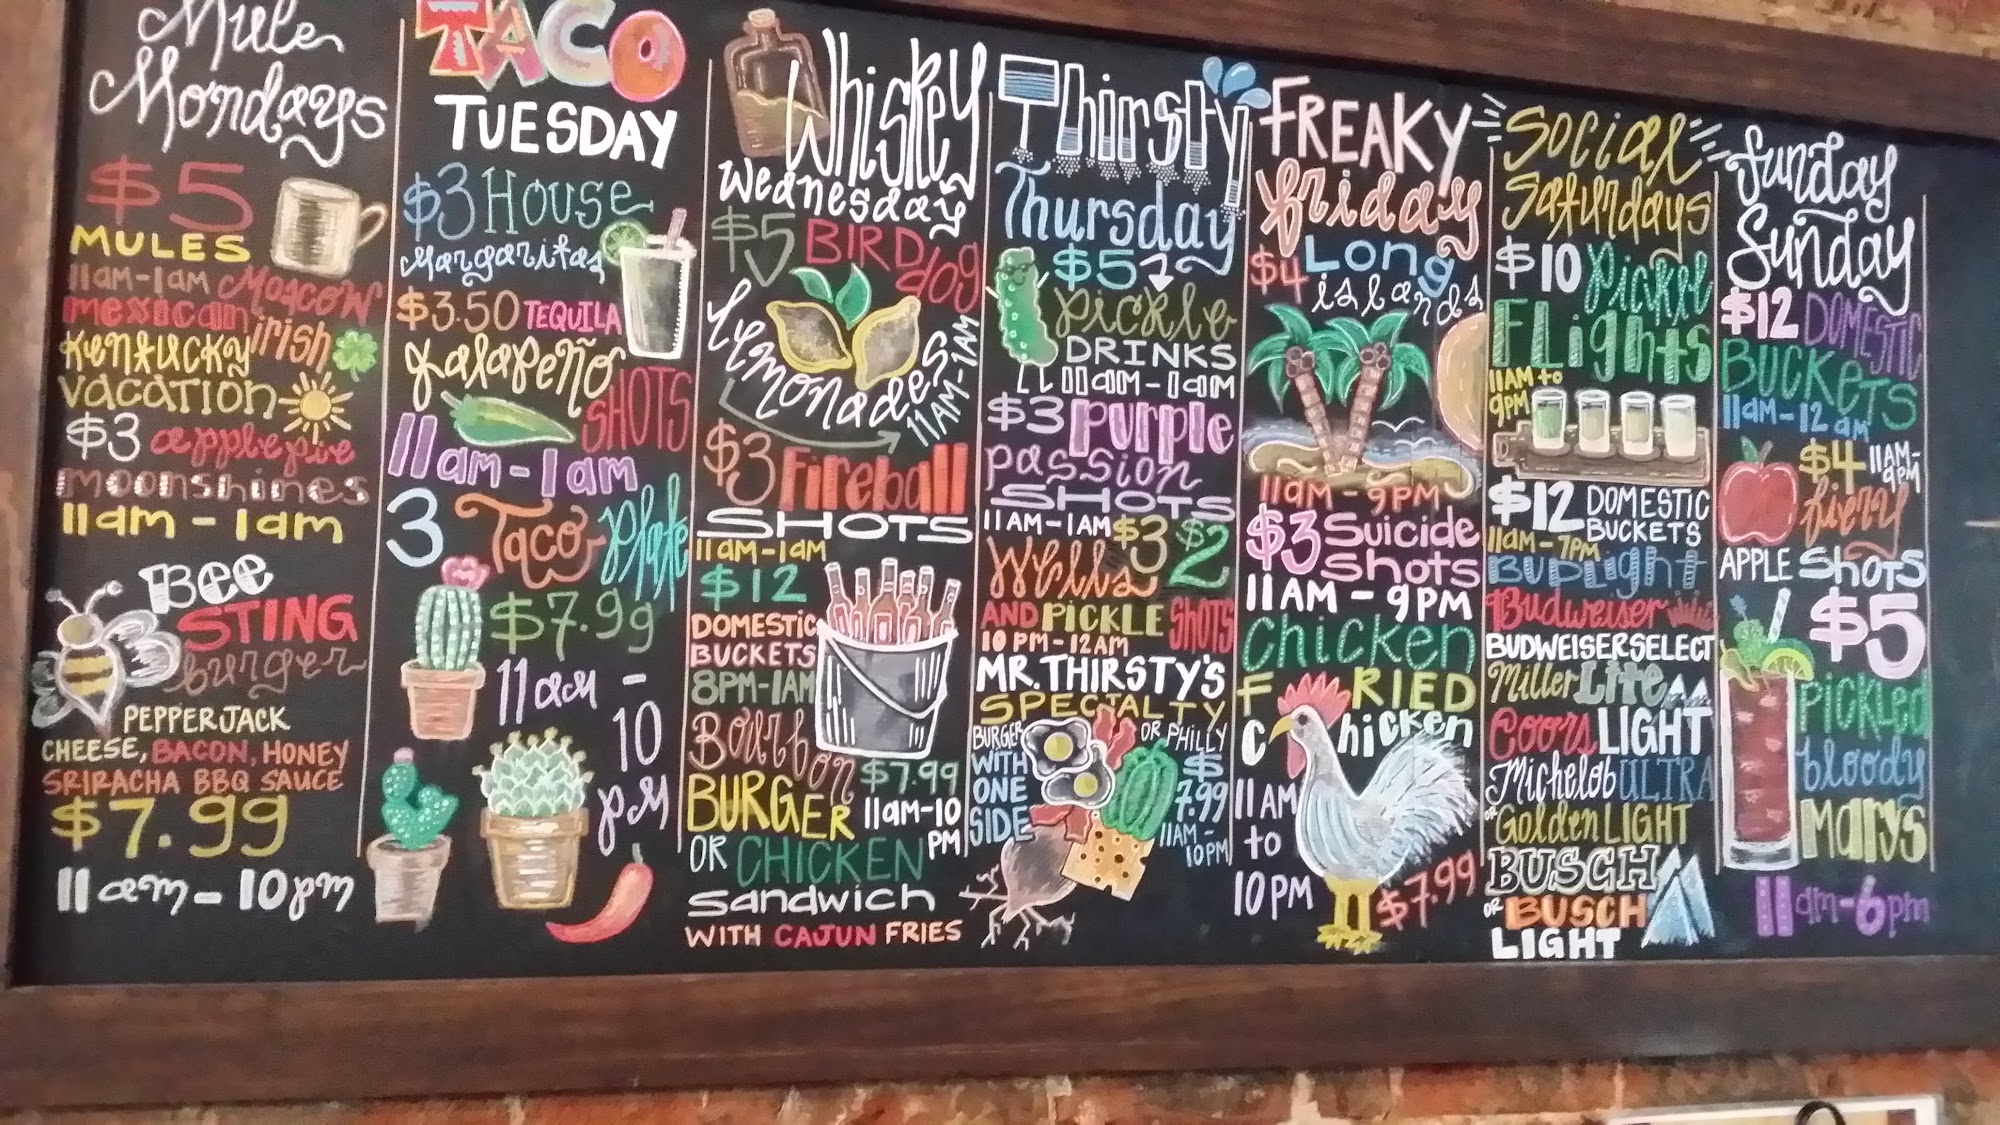 Mule
Mondays
$5
MULES
11am-1am Moscow
mexican irish
Kentucky
vacation
$3 apple pie
moonshines
11am - 1am
Bee
STING
burger
PEPPERJACK
CHEESE, BACON, HONEY
SRIRACHA BBQ SAUCE
$7.99
11am - 10pm
TACO
TUESDAY
$3 House
Margaritas
$3.50 TEQUILA
Jalapeño
SHOTS
11am - 1am
3 Taco Plate
$7.99
11am -
10
pm
Whiskey
Wednesday
$5 BIRD
dog
Lemonades
11AM-1AM
$3 Fireball
SHOTS
11am-1am
$12
DOMESTIC
BUCKETS
8PM-1AM
Bourbon $7.99
BURGER 11am-10
PM
OR CHICKEN
sandwich
WITH CAJUN FRIES
Thirsty
Thursday
$5
pickle
DRINKS
11am-1am
$3 purple
passion
SHOTS
11AM-1AM $3 $2
Wells
AND PICKLE SHOTS
10PM-12AM
MR. THIRSTY'S
SPECIALTY
BURGER OR PHILLY
WITH $
ONE 7.99
SIDE 11AM-
10PM
FREAKY
friday
$4 Long
islands
11am - 9PM
$3 Suicide
Shots
11AM - 9PM
Chicken
FRIED
Chicken
11AM
to
10PM $7.99
Social
Saturdays
$10 Pickle
FLights
11AM to
9PM
$12 DOMESTIC
BUCKETS
11am-7PM
BudLight
Budweiser
BUDWEISERSELECT
Miller Lite
Coors LIGHT
Michelob ULTRA
Golden LIGHT
BUSCH
OR BUSCH
LIGHT
Sunday
Sunday
$12 DOMESTIC
BUCKETS
11am-12am
$4 11AM-
9PM
fiery
APPLE SHOTS
$5
PICKLED
bloody
MARYS
11am-6pm